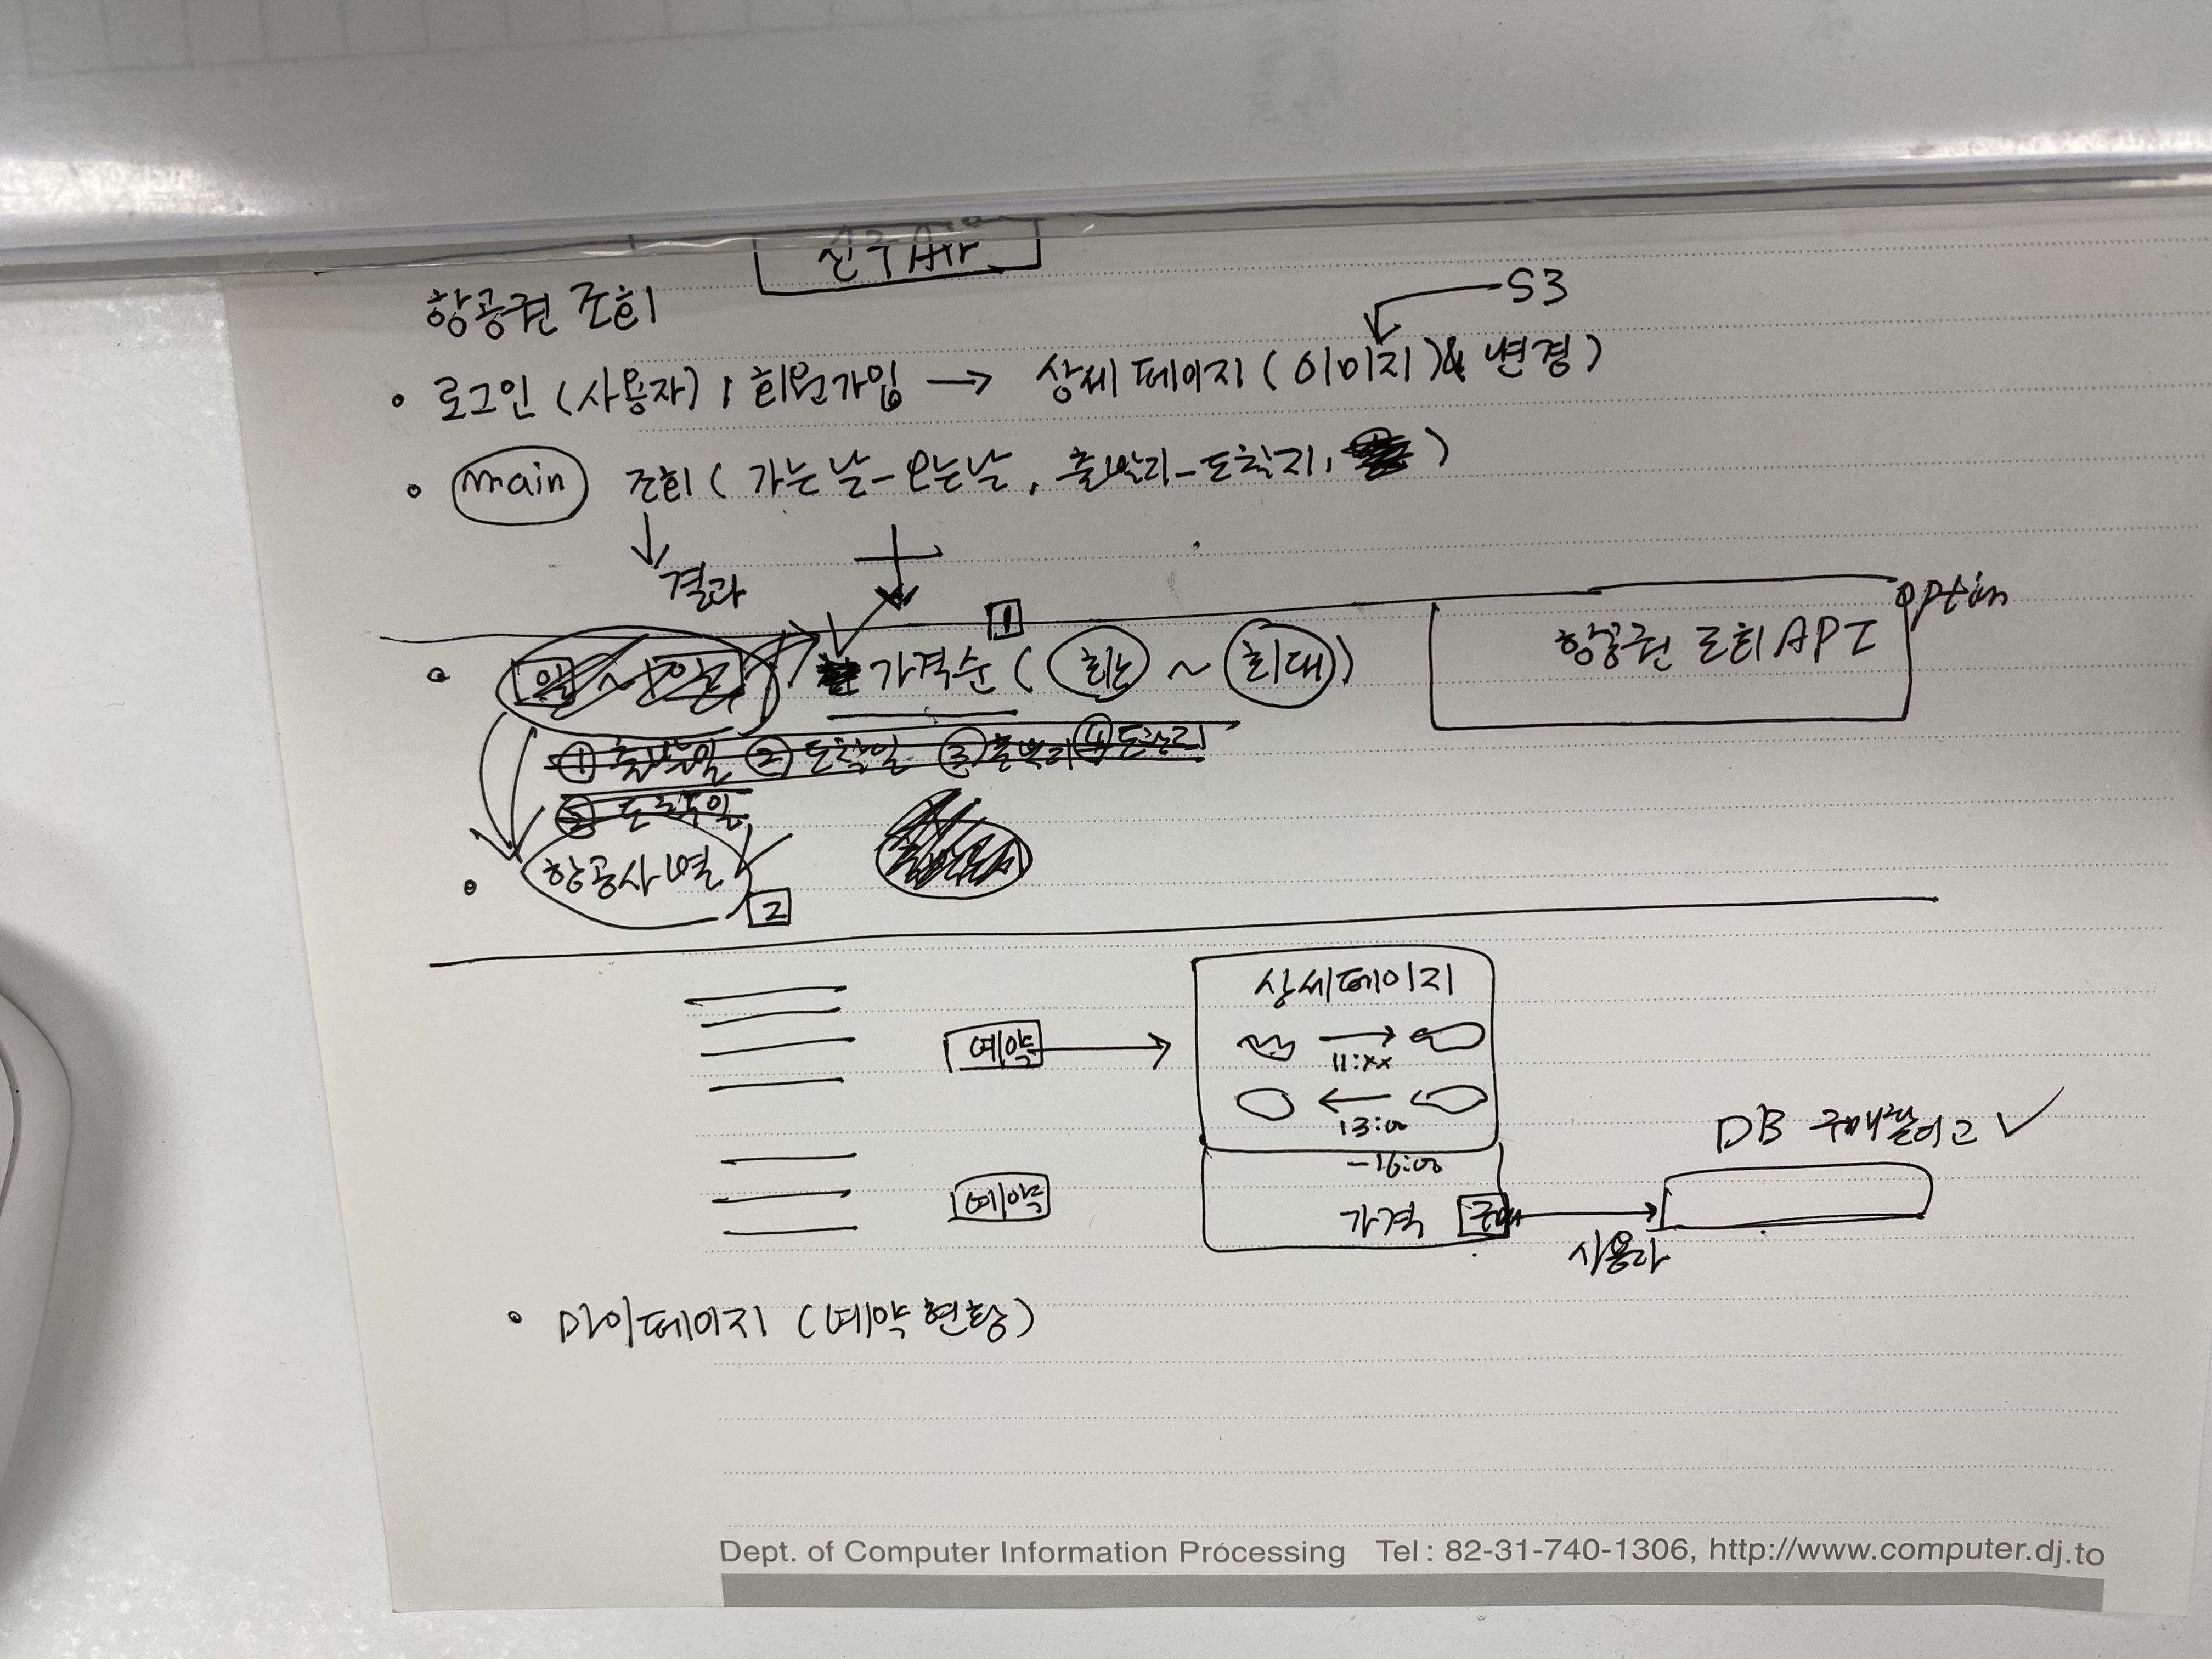 신구 Air
항공권 조회
S3
• 로그인 (사용자), 회원가입 → 상세 페이지 (이미지)& 변경)
• main 조회 ( 가는 날-오는날, 출발지-도착지, )
결과
1
option
• 가격순 ( 최소 ~ 최대)
항공권 조회 API
① 출발일 ② 도착일 ③ 출발지 ④ 도착지
⑤
• 항공사별
2
상세페이지
예약
11:xx
13:00
DB 구매할라고 ✓
-16:00
예약
가격 구매
사용자
• 마이페이지 (예약 현황)
Dept. of Computer Information Processing Tel : 82-31-740-1306, http://www.computer.dj.to